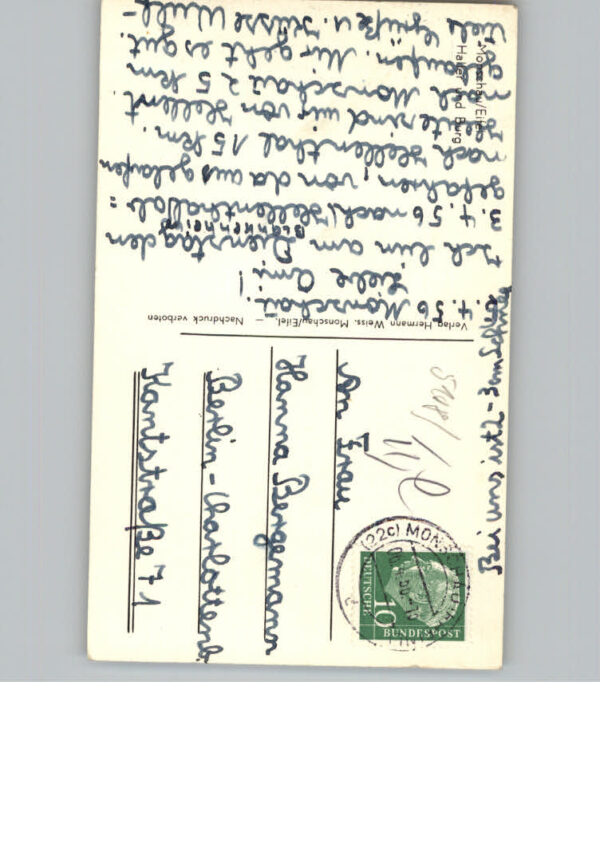 Monschau/Eifel
Haller und Burg
4.56 Monschau.
Liebe Omi!
Ich bin am Dienstag den
3.4.56 nach Hellenthal üb
Blankenheim
gefahren, von da aus gelaufen
nach Hellenthal 15 km.
Heute sind wir von Hellent.
nach Monschau 25 km
gelaufen. Mir geht es gut.
Viele Grüße u. Küsse
Bei uns ist 2-3 cm Schnee
Verlag Hermann Weiss, Monschau/Eifel. — Nachdruck verboten
An Frau
Hanna Bergemann
Berlin-Charlottenb
Kantstraße 71
(22c) MONSCHAU
DEUTSCHE
BUNDESPOST
10